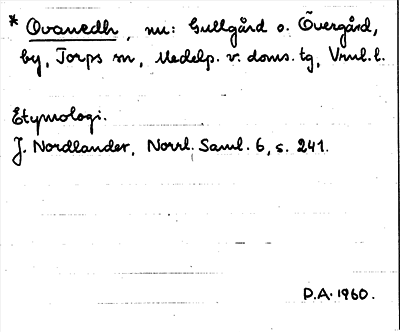 * Ovanedh, nu: Gullgård o. Övergård,
by, Torps sn, Medelp. v. doms. tg, Vnrl. l.
Etymologi.
J. Nordlander, Norrl. Saml. 6, s. 241.
D.A. 1960.